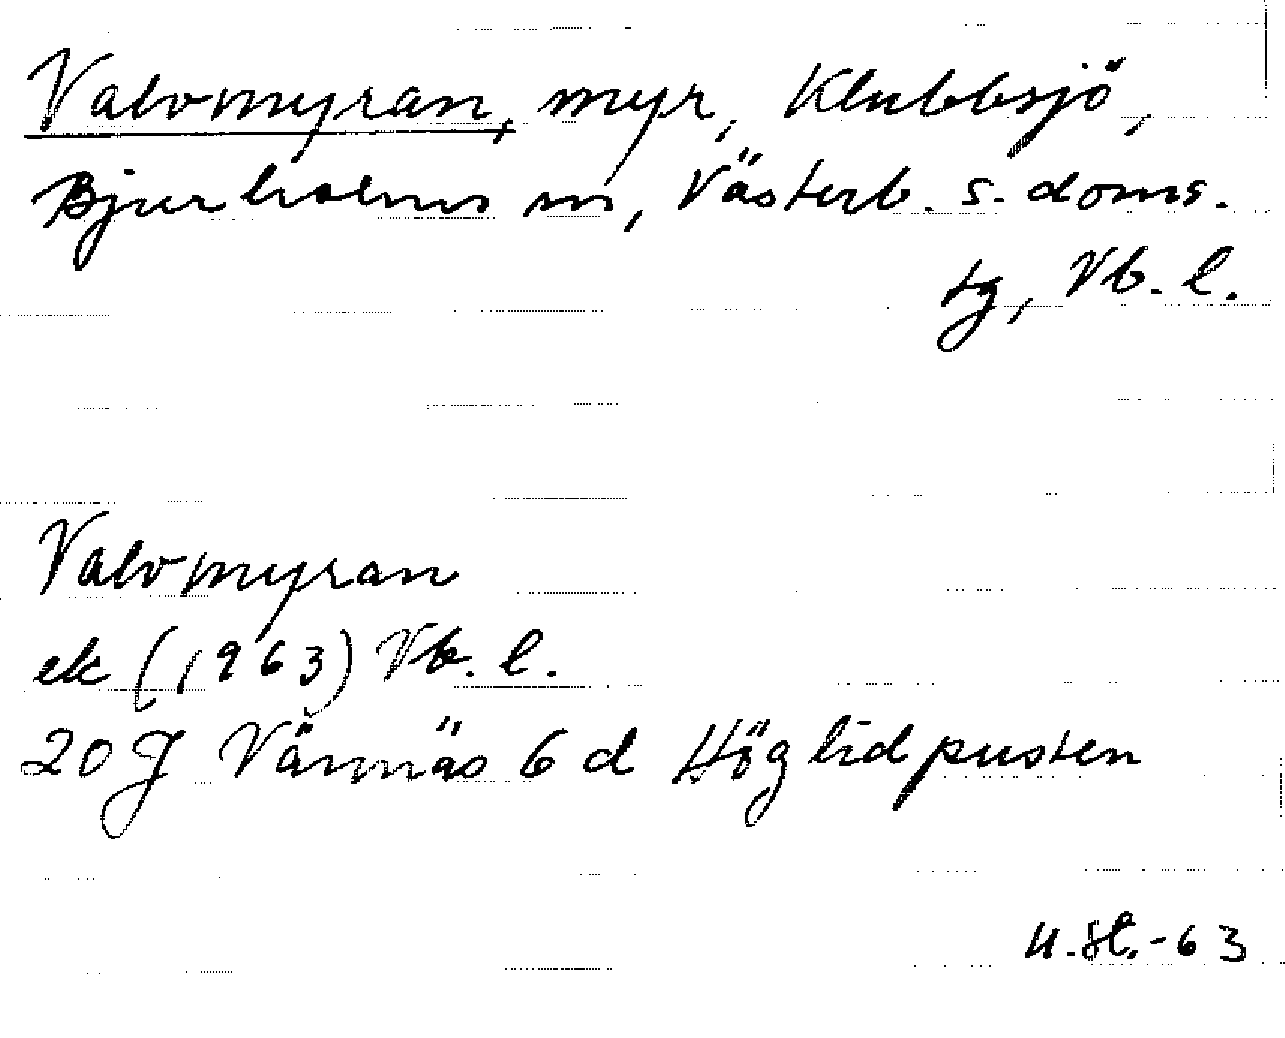 Valvomyran, myr, Klubbsjö,
Bjurholms sn, Västerb. s. doms.
tg, Vb. l.
Valvomyran
ek (1963) Vb. l.
20 J Vännäs 6 d Höglidpusten
-63